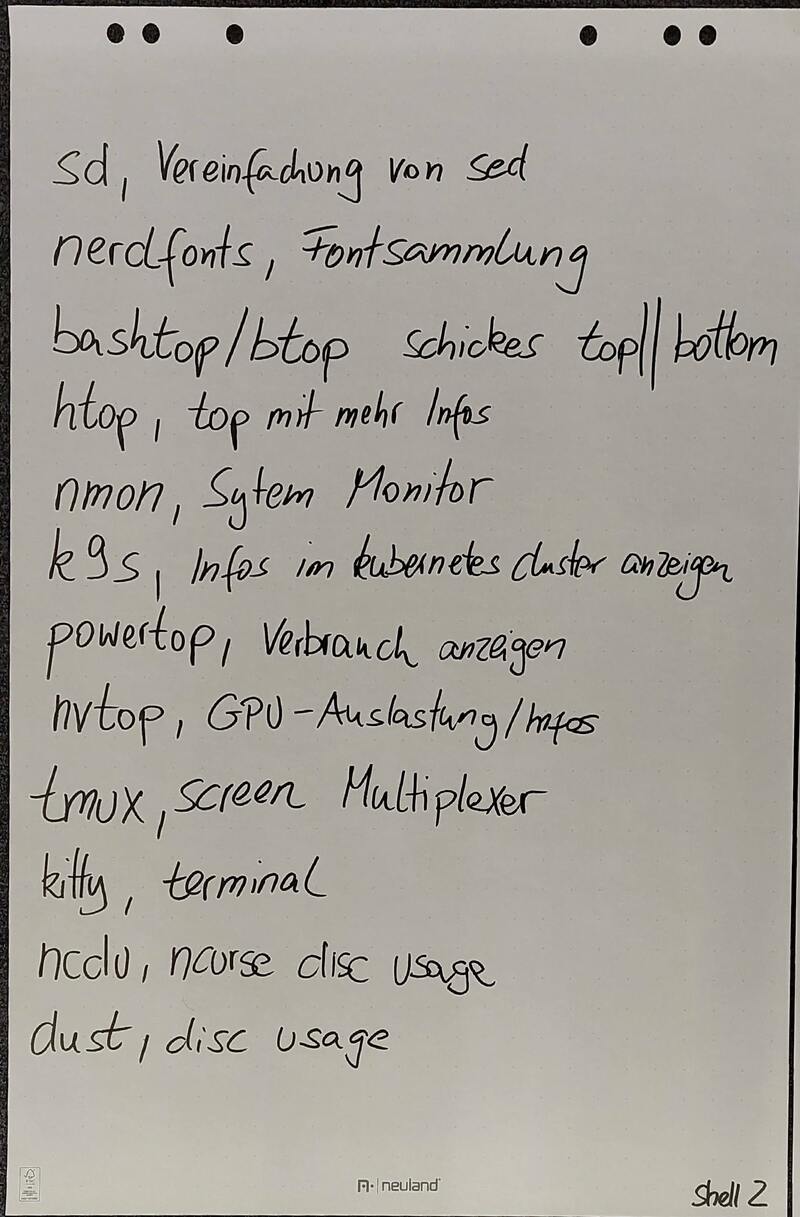 sd, Vereinfachung von sed
nerdfonts, Fontsammlung
bashtop/btop schickes top||bottom
htop, top mit mehr Infos
nmon, Sytem Monitor
k9s, Infos im kubernetes cluster anzeigen
powertop, Verbrauch anzeigen
nvtop, GPU-Auslastung/Infos
tmux, screen Multiplexer
kitty, terminal
ncdu, ncurse disc usage
dust, disc usage
neuland
Shell 2